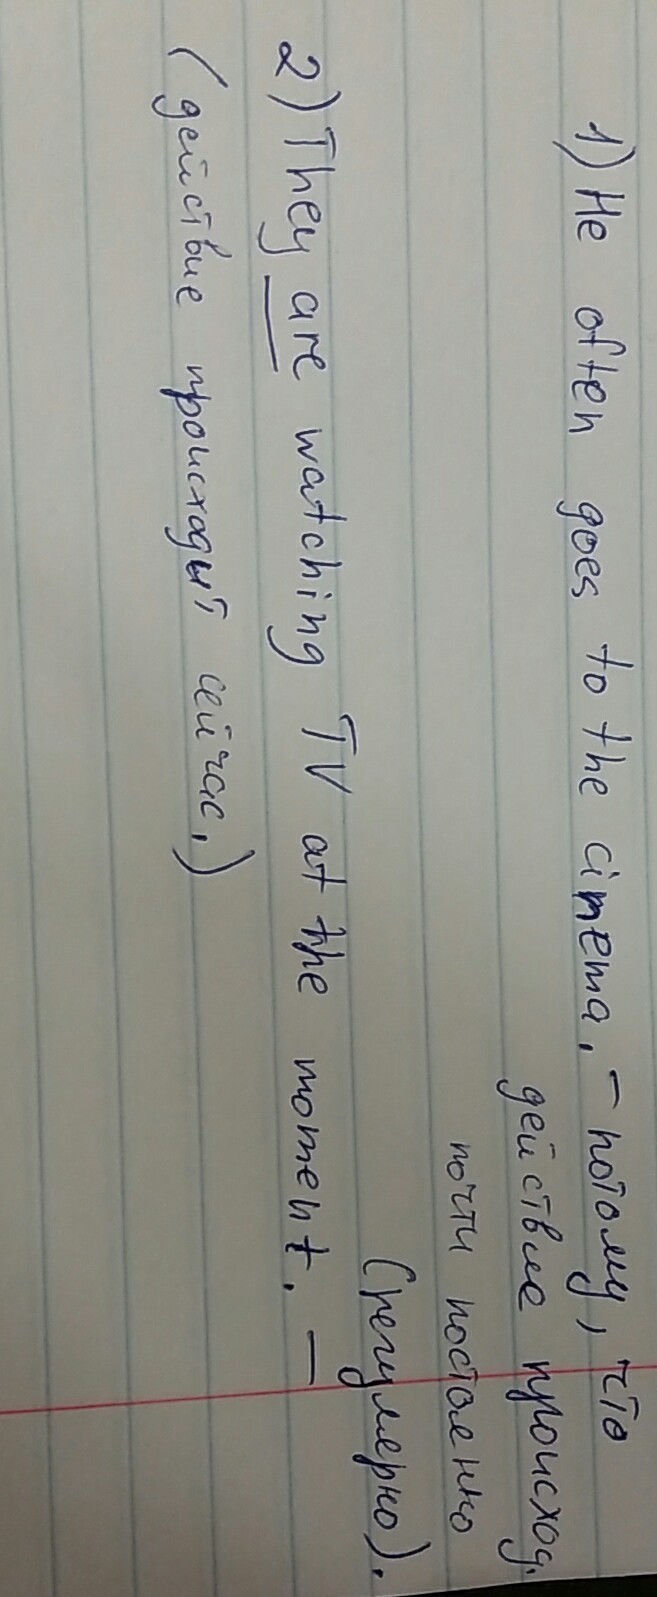 1) He often goes to the cinema. – потому, что
действие происход.
почти постоянно
(регулярно).
2) They are watching TV at the moment. –
(действие происходит сейчас.)